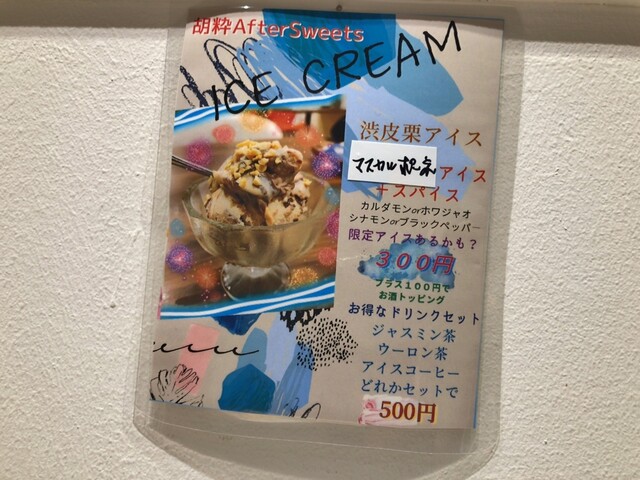 胡粋AfterSweets
ICE CREAM
渋皮栗アイス
マスカルポネアイス
+スパイス
カルダモンorホワジャオ
シナモンorブラックペッパー
限定アイスあるかも？
３００円
プラス１００円で
お酒トッピング
お得なドリンクセット
ジャスミン茶
ウーロン茶
アイスコーヒー
どれかセットで
500円